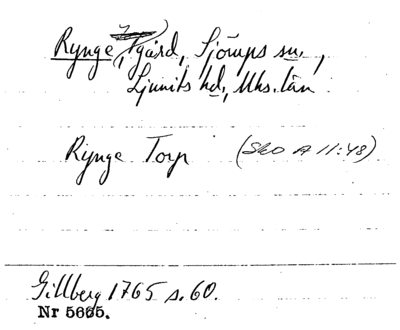 Rynge, gård, Sjörups sn.,
Ljunits hd., Mhs. län.
Rijnge Torp (SkO A 11:48)
Gillberg 1765 s. 60.
Nr 5665.